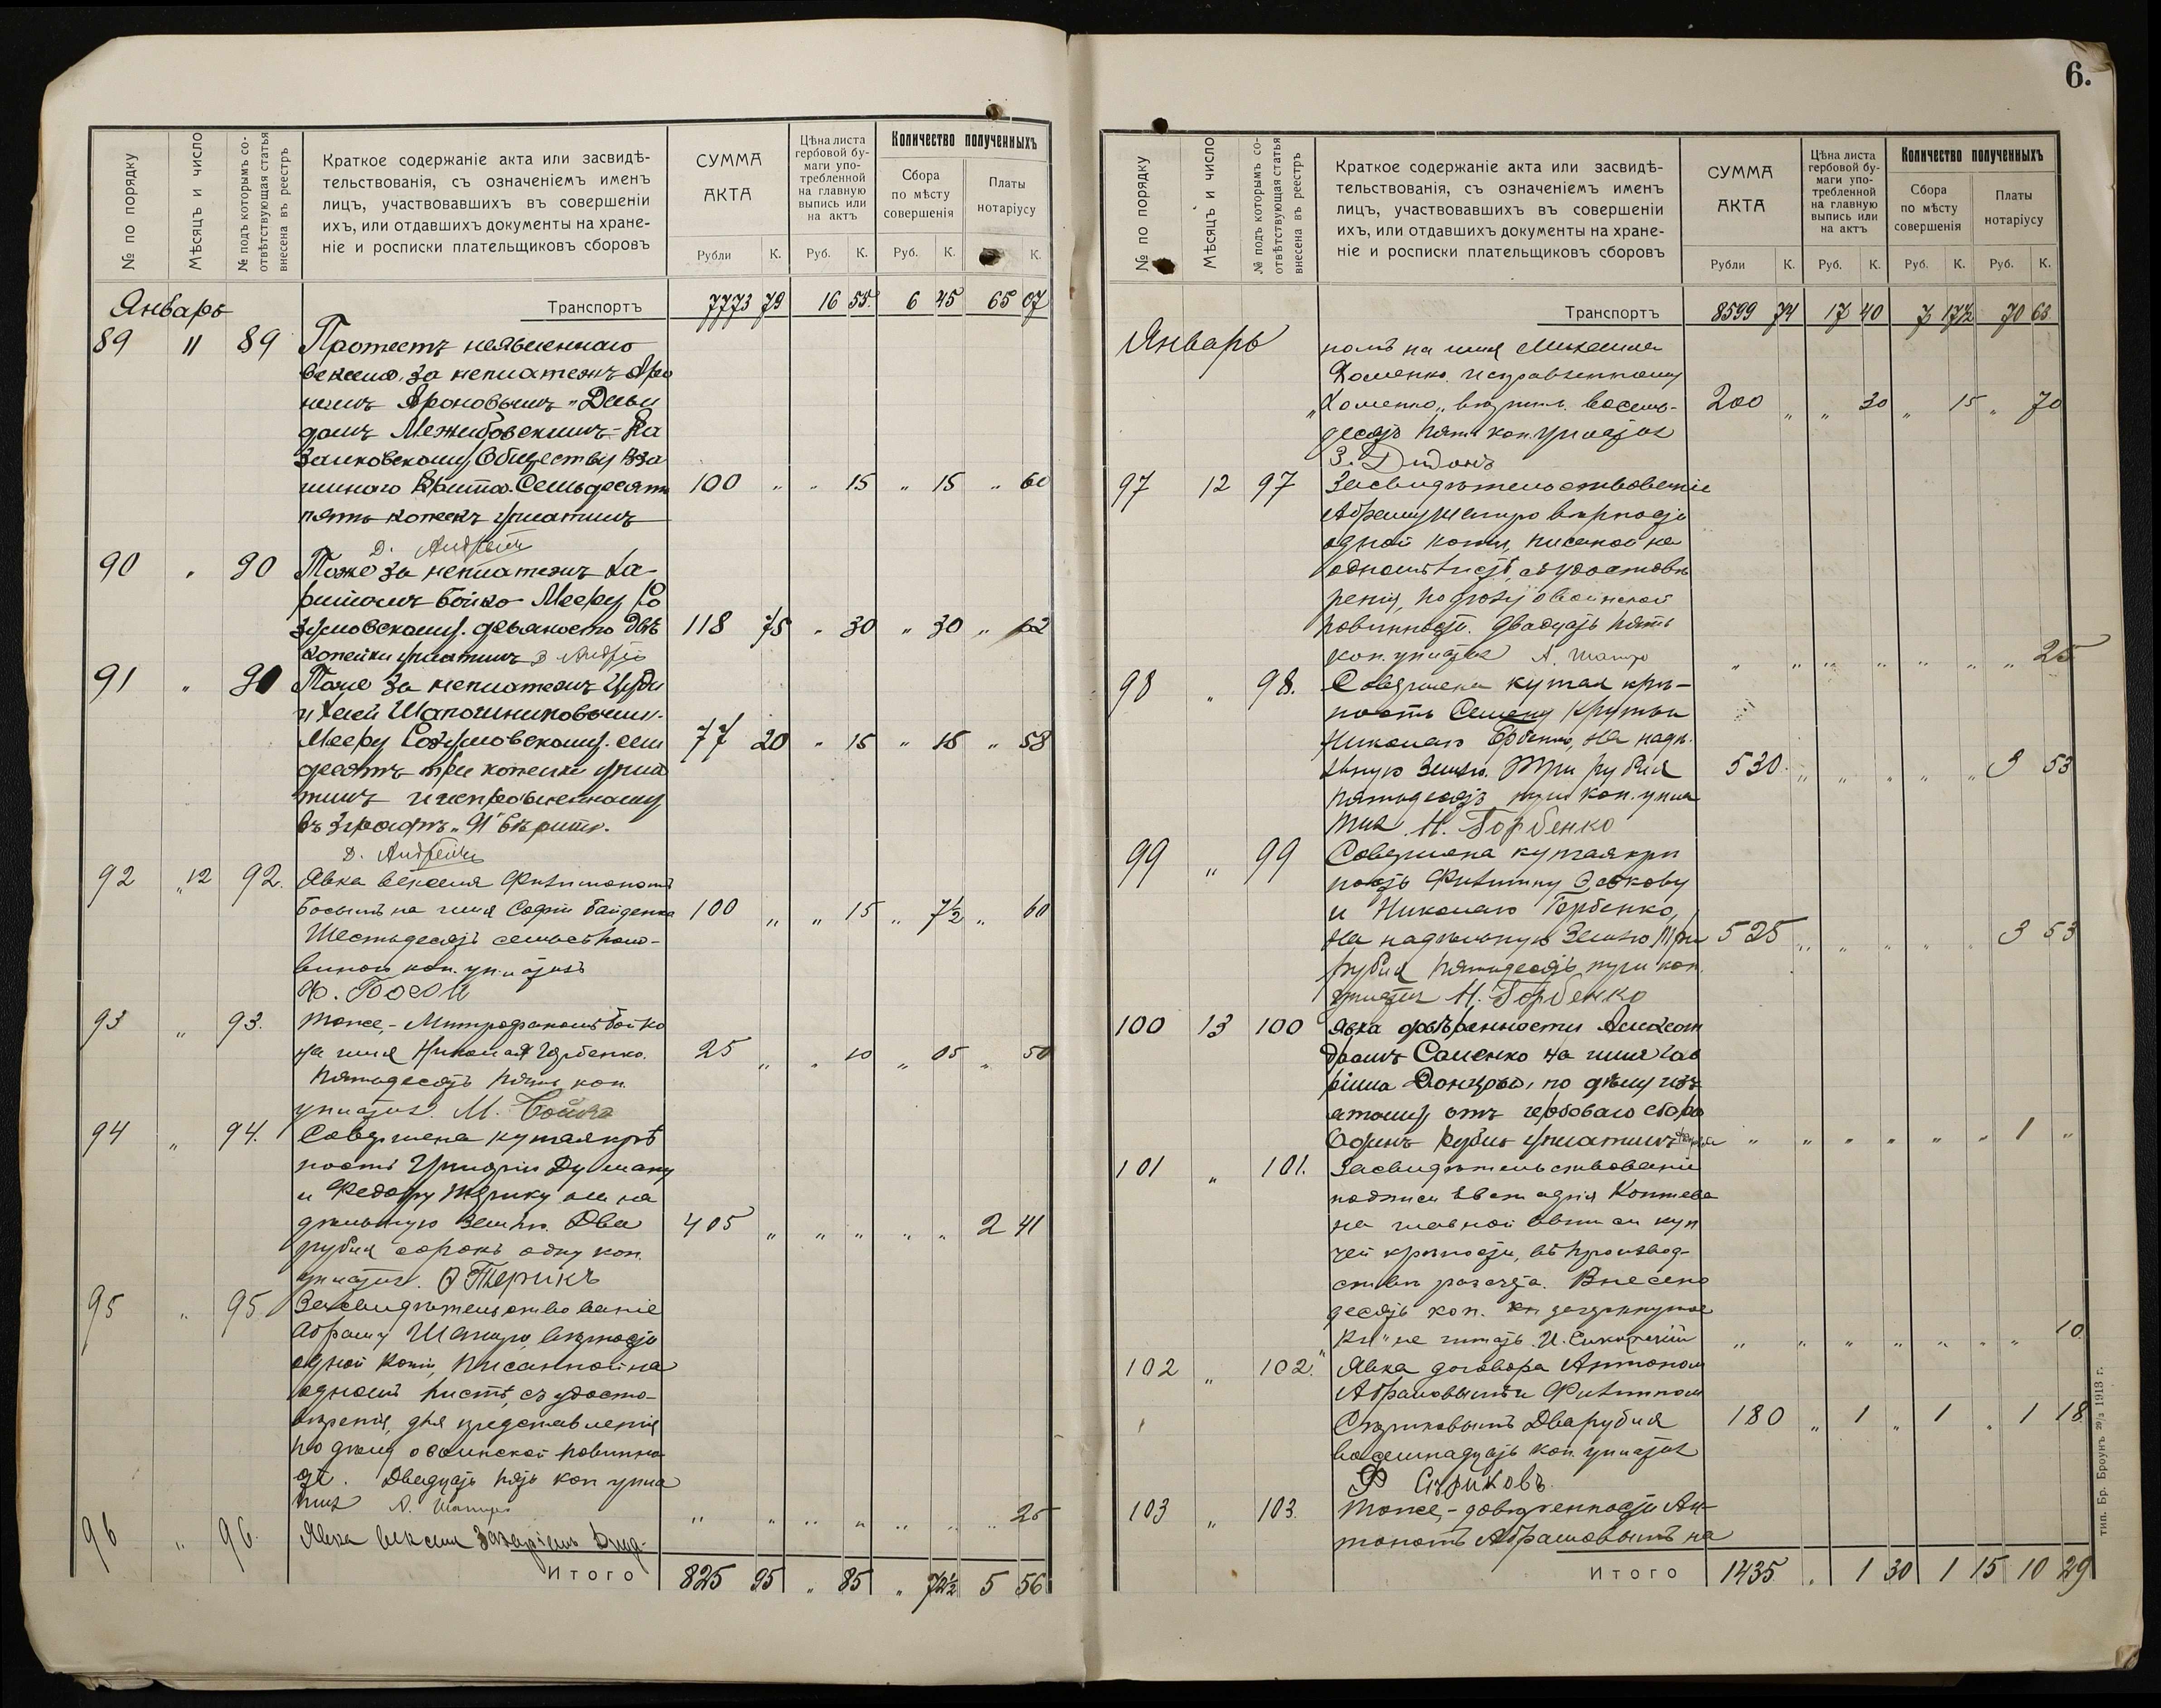 № по порядку
Мѣсяцъ и число
№ подъ которымъ со-
отвѣтствующая статья
внесена въ реестръ
Краткое содержаніе акта или засвидѣ-
тельствованія, съ означеніемъ именъ
лицъ, участвовавшихъ въ совершеніи
ихъ, или отдавшихъ документы на хране-
ніе и росписки плательщиковъ сборовъ
СУММА
АКТА
Рубли К.
Цѣна листа
гербовой бу-
маги упо-
требленной
на главную
выпись или
на актъ
Руб. К.
Количество полученныхъ
Сбора
по мѣсту
совершенія
Руб. К.
Платы
нотаріусу
К.
Январь Транспортъ 7773 79 16 55 6 45 65 07
89 11 89 Протестъ неявленнаго
векселя за неплатежъ
Ароновымъ Давы
домъ Межибовскимъ
Обществу Вза
имнаго Кредита. Семьдесятъ 100 " " 15 " 15 " 60
пять копекъ уплатилъ
Д. Андрейчъ
90 " 90 Тоже за неплатежъ Ха-
Бойко Мееру
девяносто двѣ 118 75 " 30 " 30 " 62
копейки уплатилъ Д Андрей
91 " 90 Тоже за неплатежъ
и Хаей Шапошниковыми
Мееру сем 77 20 " 15 " 15 " 58
десятъ три копейки упла
тилъ
въ графѣ "91" вѣрить.
Д. Андрейчъ
92 " 12 92. Явка векселя Филимономъ
Босымъ на имя Софіи Гайденко 100 " " 15 " 7½ " 60
Шестьдесятъ семь съ поло-
виною коп. уплатилъ
Ф. Босой
93 " 93. Тоже, - Митрофаномъ Бойко
на имя Николая Горбенко. 25 " " 10 " 05 " 50
Пятьдесятъ пять коп.
уплатилъ. М. Бойко
94 " 94. Совершена купчая крѣ
пость Григорію Думану
и Федору Терику на на
дѣльную землю. Два 405 " " " " " 2 41
рубля сорокъ одну коп.
уплатилъ. Ѳ Терикъ
95 " 95 Засвидѣтельствованіе
Абраму Шапиро, вѣрности
одной копіи, писанной на
одномъ листѣ, съ удосто-
вѣренія, для представленія
по дѣлу о воинской повинно
сти. Двадцать пять коп упла
тилъ А. Шапиро " " " " " " " 25
96 " 96. Явка векселя Захаріемъ Дид-
Итого 825 95 " 85 " 72½ 5 56
6.
№ по порядку
Мѣсяцъ и число
№ подъ которымъ со-
отвѣтствующая статья
внесена въ реестръ
Краткое содержаніе акта или засвидѣ-
тельствованія, съ означеніемъ именъ
лицъ, участвовавшихъ въ совершеніи
ихъ, или отдавшихъ документы на хране-
ніе и росписки плательщиковъ сборовъ
СУММА
АКТА
Рубли К.
Цѣна листа
гербовой бу-
маги упо-
требленной
на главную
выпись или
на актъ
Руб. К.
Количество полученныхъ
Сбора
по мѣсту
совершенія
Руб. К.
Платы
нотаріусу
Руб. К.
Транспортъ 8599 74 17 40 7 17½ 70 63
Январь номъ на имя Михаила
Хоменко. Исправленному
"Хоменко" вѣрить. Восемь- 200 " " 30 " 15 " 70
десятъ пять коп. уплатилъ
З. Дидонъ
97 12 97 Засвидѣтельствованіе
Абраму Шапиро вѣрности
одной копіи, писаной на
одномъ листѣ, съ удостовѣ
ренія, по дѣлу о воинской
повинности. Двадцать пять
коп. уплатилъ А. Шапиро " " " " " " " 25
98 " 98. Совершена купчая крѣ-
пость Семену Крутьи
Николаю Горбенко, на надѣ-
льную землю. Три рубля 530 " " " " " 3 53
пятьдесятъ три коп. упла
тилъ Н. Горбенко
99 " 99 Совершена купчая крѣ
пость Филиппу
и Николаю Горбенко,
на надѣльную землю Три 525 " " " " " 3 53
рубля пятьдесятъ три коп.
уплатилъ Н. Горбенко
100 13 100 Явка довѣренности Алексан
дромъ Саменко на имя Гав
ріила Донцова, по дѣлу изъ
ятому отъ гербоваго сбора
Одинъ рубль уплатилъ " " " " " " 1 "
101 " 101. Засвидѣтельствованіе
подписи Коптева
на главной выписи куп
чей крѣпости, въ производ-
ствѣ расчета. Внесено
десять коп. кп зачеркнутое
"кп" не читать. " " " " " " " 10
102 " 102. Явка договора Антоном
Абрамовымъ и Филиппом
Стриковымъ Два рубля 180 " 1 " 1 " 1 18
восемнадцать коп. уплатилъ
Ф Стриковъ
103 " 103. Тоже, - довѣренности Ан-
тономъ Абрамовымъ на
Итого 1435 " 1 30 1 15 10 29
тип. Бр. Броунъ 29/3 1913 г.